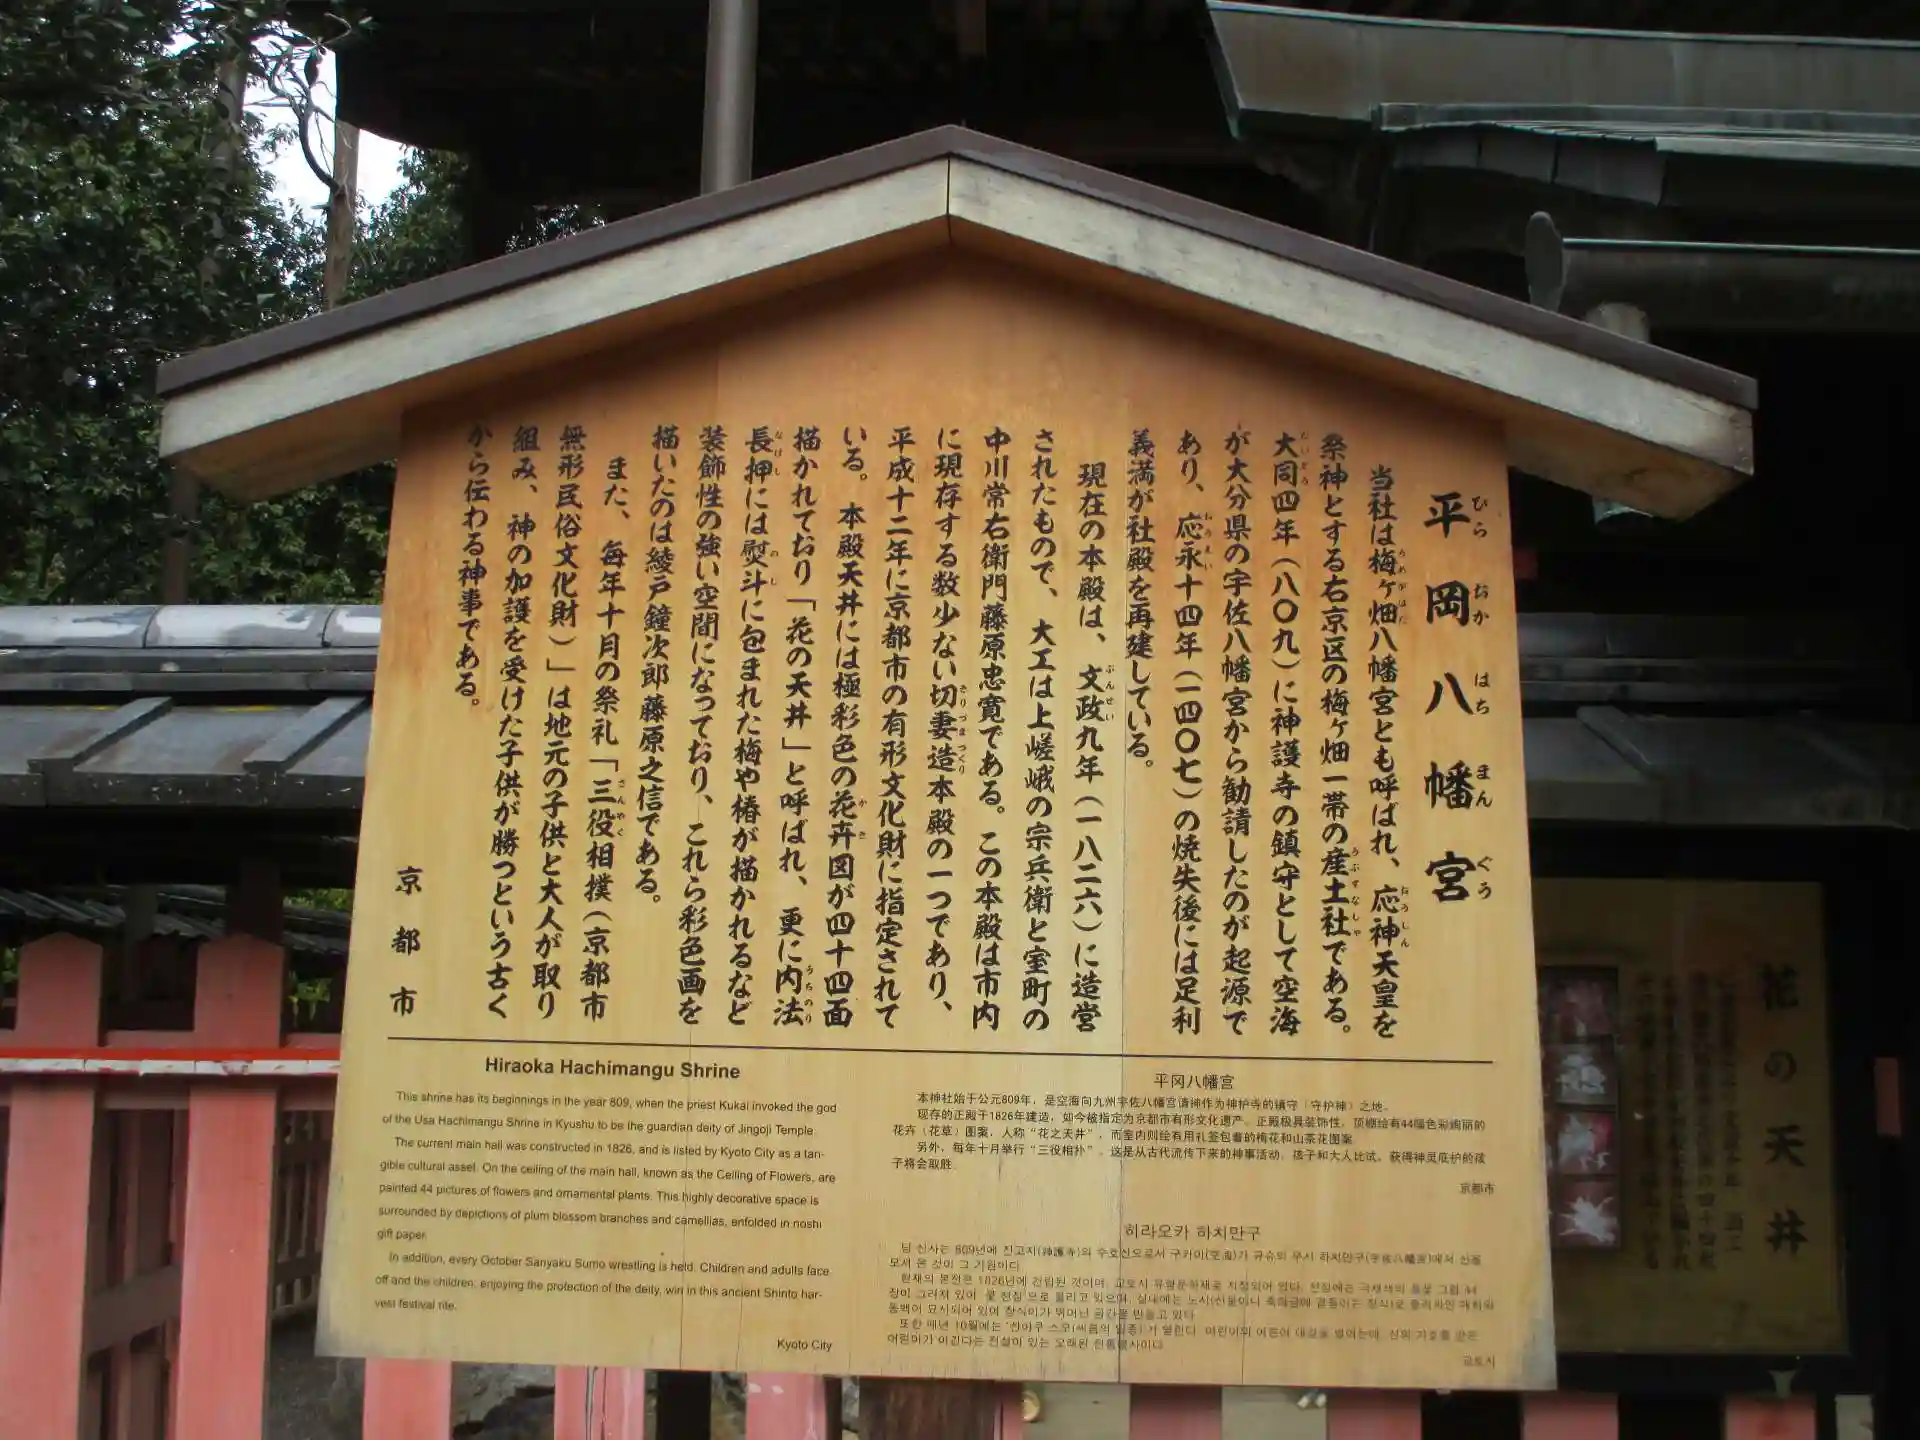 平岡八幡宮
ひら おか はち まん ぐう
当社は梅ヶ畑八幡宮とも呼ばれ、応神天皇を
祭神とする右京区の梅ヶ畑一帯の産土社である。
大同四年(八〇九)に神護寺の鎮守として空海
が大分県の宇佐八幡宮から勧請したのが起源で
あり、応永十四年(一四〇七)の焼失後には足利
義満が社殿を再建している。
現在の本殿は、文政九年(一八二六)に造営
されたもので、大工は上嵯峨の宗兵衛と室町の
中川常右衛門藤原忠寛である。この本殿は市内
に現存する数少ない切妻造本殿の一つであり、
平成十二年に京都市の有形文化財に指定されて
いる。本殿天井には極彩色の花卉図が四十四面
描かれており「花の天井」と呼ばれ、更に内法
長押には熨斗に包まれた梅や椿が描かれるなど
装飾性の強い空間になっており、これら彩色画を
描いたのは綾戸鐘次郎藤原之信である。
また、毎年十月の祭礼「三役相撲(京都市
無形民俗文化財)」は地元の子供と大人が取り
組み、神の加護を受けた子供が勝つという古く
から伝わる神事である。
京都市
Hiraoka Hachimangu Shrine
This shrine has its beginnings in the year 809, when the priest Kukai invoked the god
of the Usa Hachimangu Shrine in Kyushu to be the guardian deity of Jingoji Temple.
The current main hall was constructed in 1826, and is listed by Kyoto City as a tan-
gible cultural asset. On the ceiling of the main hall, known as the Ceiling of Flowers, are
painted 44 pictures of flowers and ornamental plants. This highly decorative space is
surrounded by depictions of plum blossom branches and camellias, enfolded in noshi
gift paper.
In addition, every October Sanyaku Sumo wrestling is held. Children and adults face
off and the children, enjoying the protection of the deity, win in this ancient Shinto har-
vest festival rite.
Kyoto City
平冈八幡宫
本神社始于公元809年，是空海向九州宇佐八幡宫请神作为神护寺的镇守（守护神）之地。
现存的正殿于1826年建造，如今被指定为京都市有形文化遗产。正殿极具装饰性，顶棚绘有44幅色彩绚丽的
花卉（花草）图案，人称“花之天井”，而室内则绘有用礼签包着的梅花和山茶花图案。
另外，每年十月举行“三役相扑”，这是从古代流传下来的神事活动，孩子和大人比试，获得神灵庇护的孩
子将会取胜。
京都市
히라오카 하치만구
님 신사는 809년에 진고지(神護寺)의 수호신으로서 구카이(空海)가 규슈의 우사 하치만구(宇佐八幡宮)에서 신을
모셔 온 것이 그 기원이다.
현재의 본전은 1826년에 건립된 것이며, 교토시 유형문화재로 지정되어 있다.
또한 매년 10월에는
어린이가 이긴다는 전설이 있는 오래된 전통행사이다.
교토시
花の天井